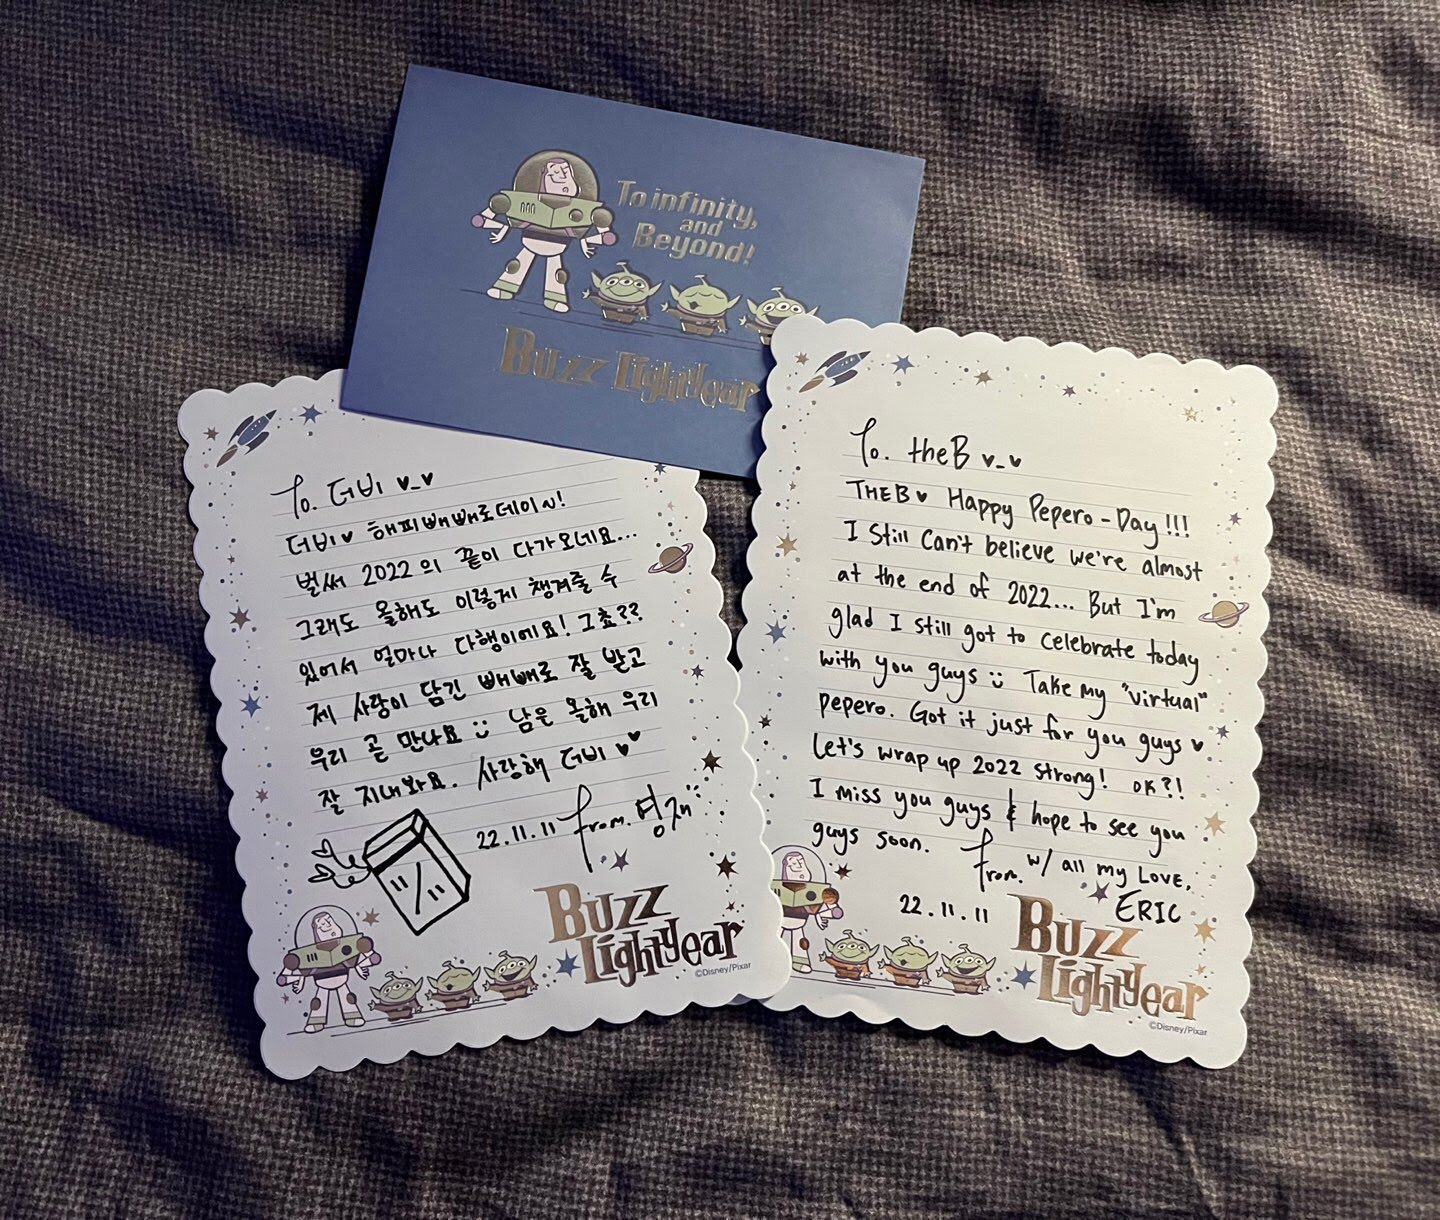 To infinity,
and
Beyond!
Buzz Lightyear
To. 더비 ♥_♥
더비♥ 해피빼빼로데이~!
벌써 2022의 끝이 다가오네요...
그래도 올해도 이렇게 챙겨줄 수
있어서 얼마나 다행이에요! 그쵸??
제 사랑이 담긴 빼빼로 잘 받고
우리 곧 만나요 :) 남은 올해 우리
잘 지내봐요. 사랑해 더비 ♥♥
22.11.11 from. 영재
Buzz
Lightyear
©Disney/Pixar
To. theB ♥_♥
THEB♥ Happy Pepero-Day!!!
I Still can't believe we're almost
at the end of 2022... But I'm
glad I still got to celebrate today
with you guys :) Take my "virtual"
pepero. Got it just for you guys ♥
Let's wrap up 2022 strong! OK?!
I miss you guys & hope to see you
guys soon. From. w/ all my LOVE,
22.11.11 ERIC
Buzz
Lightyear
©Disney/Pixar